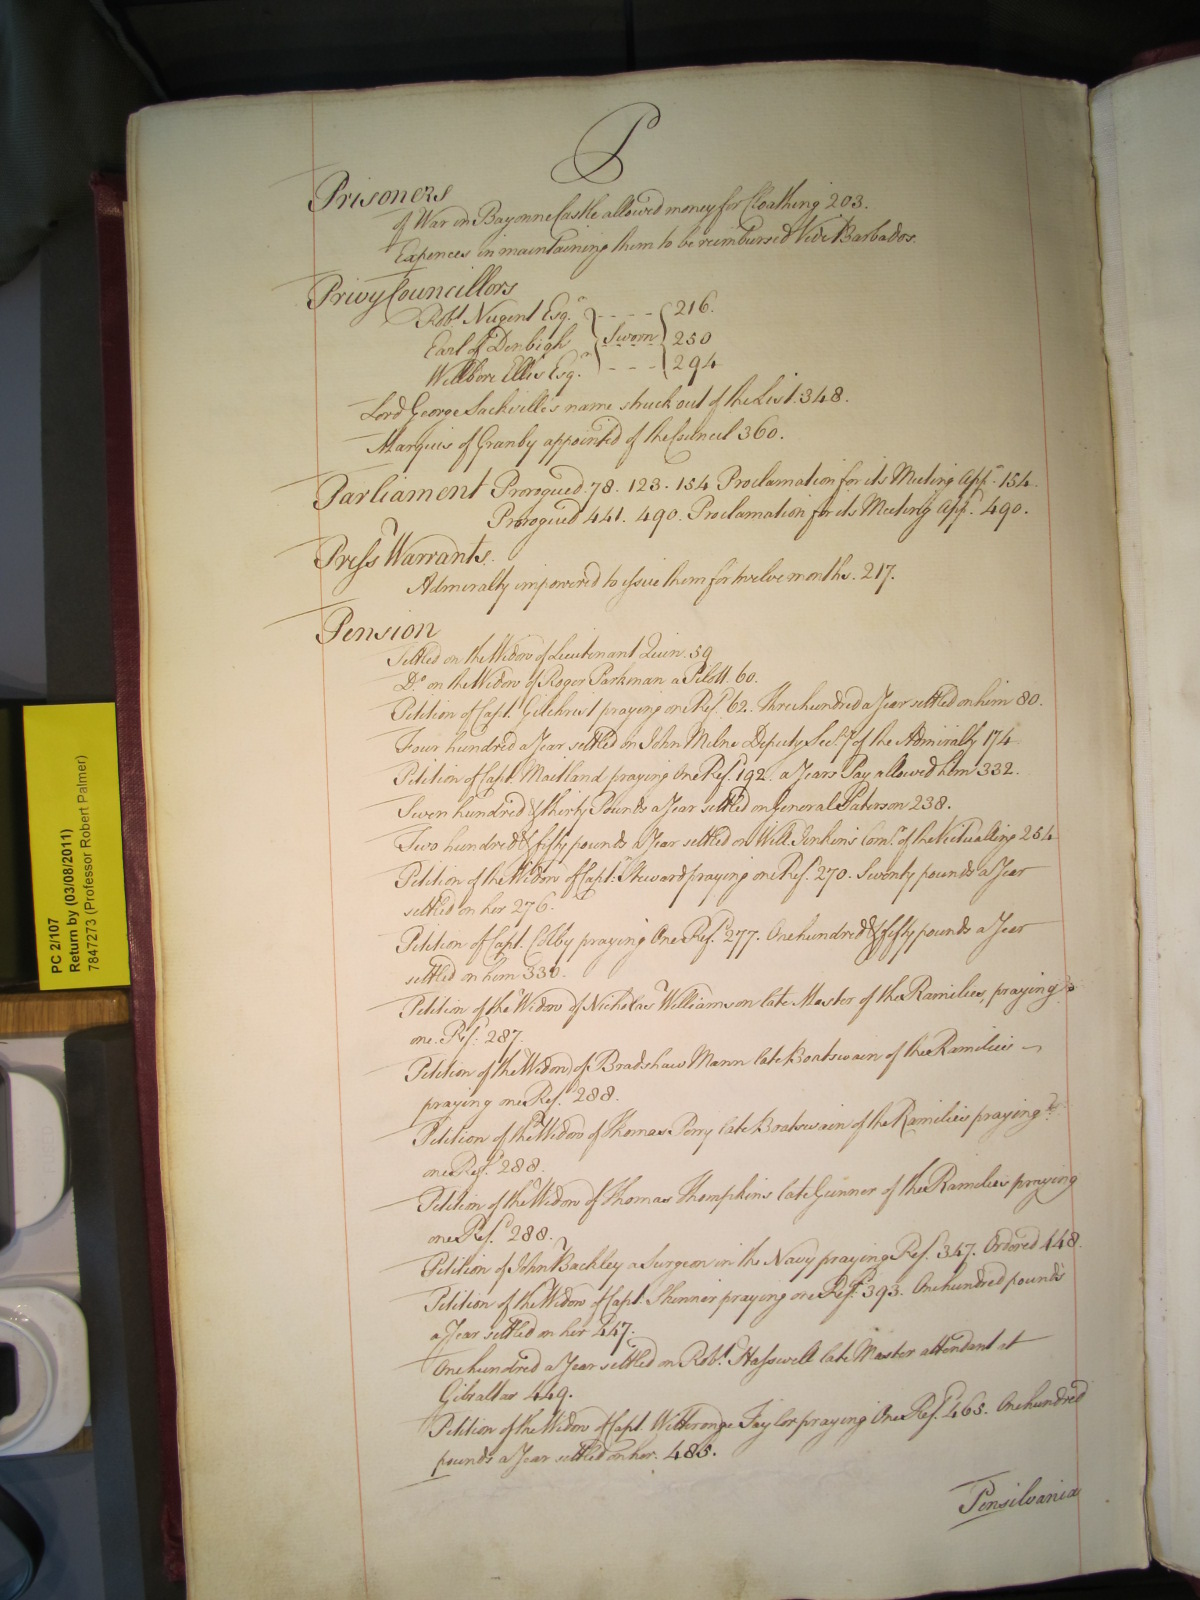 P
Prisoners
of War in Bayonne Castle allowed money for Cloathing 203.
Expences in maintaining them to be reimbursed Vide Barbados.
Privy Councillors
Robt. Nugent Esqr. - - - - 216.
Earl of Denbigh Sworn 250
Wellbore Ellis Esqr. - - - 294
Lord George Sackville's name struck out of the List. 348.
Marquis of Granby appointed of the Council 360.
Parliament Prorogued. 78. 123. 154 Proclamation for its Meeting App. 154.
Prorogued 441. 490. Proclamation for its Meeting App. 490.
Press Warrants.
Admiralty impowered to issue them for twelve months. 217.
Pension
Settled on the Widow of Lieutenant Quin. 59
Do. on the Widow of Roger Parkman a Pilott. 60.
Petition of Capt. Gilchrist praying one Ref. 62. Three hundred a Year settled on him 80.
Four hundred a Year settled on John Milne Deputy Secry. of the Admiralty 174
Petition of Capt. Maitland praying One Ref. 192. a Years Pay allowed him 332.
Seven hundred & thirty Pounds a Year settled on General Paterson 238.
Two hundred & fifty pounds a Year settled on Will. Jenkins Comr. of the Victualling 254
Petition of the Widow of Capt. Steward praying one Ref. 270. Seventy pounds a Year
settled on her 276.
Petition of Capt. Colby praying One Ref. 277. One hundred & fifty pounds a Year
settled on him 330.
Petition of the Widow of Nicholas Williamson late Master of the Ramilies, praying
one Ref. 287.
Petition of the Widow of Bradshaw Mann late Boatswain of the Ramilies
praying one Ref. 288.
Petition of the Widow of Thomas Perry late Boatswain of the Ramilies praying
one Ref. 288.
Petition of the Widow of Thomas Thompkins late Gunner of the Ramilies praying
one Ref. 288.
Petition of John Backley a Surgeon in the Navy praying Ref. 347. Ordered 448.
Petition of the Widow of Capt. Skinner praying one Ref. 393. One hundred pounds
a Year settled on her 447.
One hundred a Year settled on Robt. Hasswell late Master attendant at
Gibraltar 449.
Petition of the Widow of Capt. Witteronge Taylor praying One Ref. 465. One hundred
pounds a Year settled on her. 485.
Pensilvania
PC 2/107
Return by (03/08/2011)
7847273 (Professor Robert Palmer)